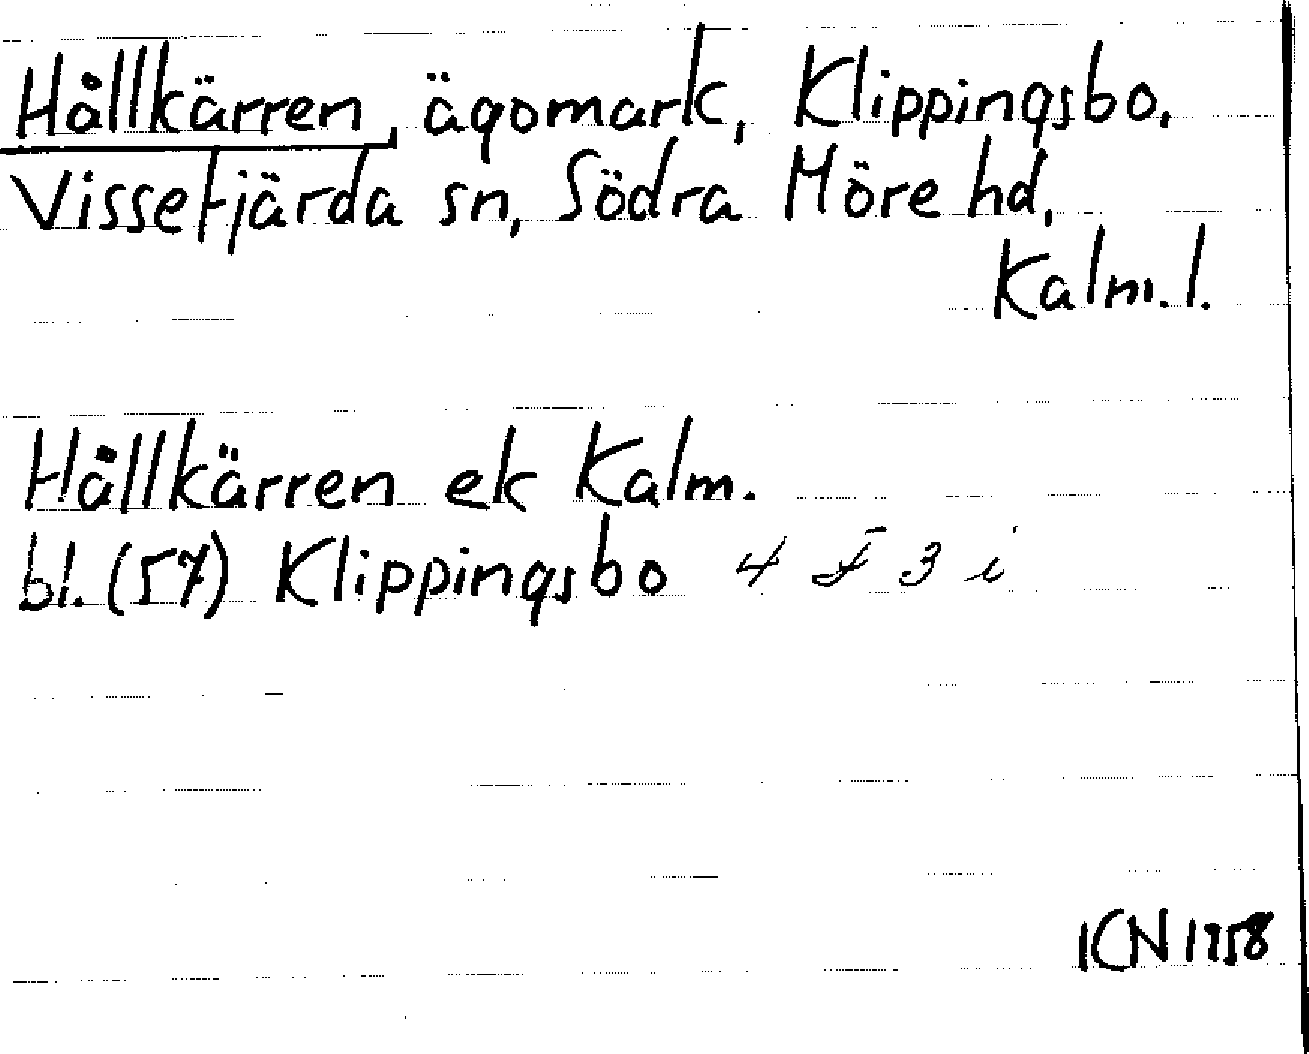 Hållkärren, ägomark, Klippingsbo,
Vissefjärda sn, Södra Möre hd,
Kalm. l.
Hållkärren ek Kalm.
bl. (57) Klippingsbo 4 F 3 i
ICN 1958